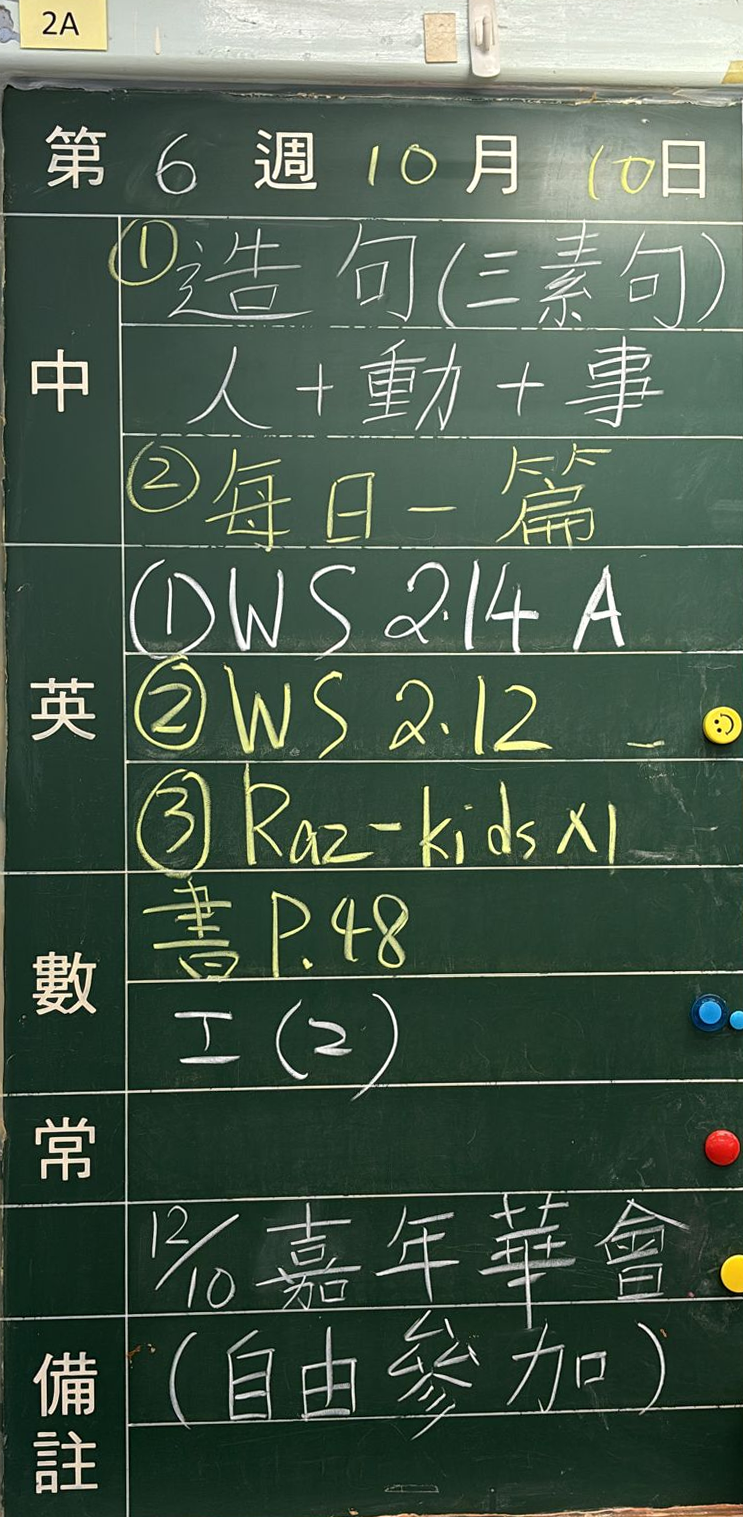 2A
第 6 週 10 月 10 日
中
① 造句(三素句)
人+動+事
② 每日一篇
英
① WS 2.14 A
② WS 2.12
③ Raz-kids x1
數
書 P.48
工(2)
常
12/10 嘉年華會
備註
(自由參加)